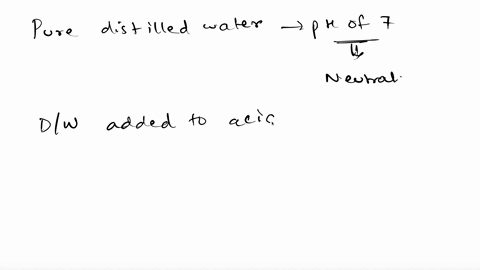 Pure distilled water → pH of 7
Neutral.
D/W added to acid